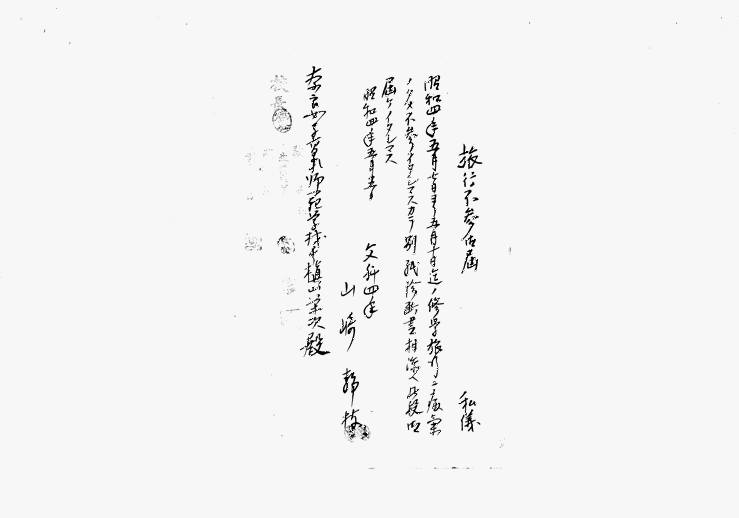 旅行不参加届
私儀
昭和四年五月七日ヨリ五月十日迄ノ修学旅行ニ病気
ノタメ不参イタシマスカラ別紙診断書相添ヘ此段御
届ケイタシマス
昭和四年五月
文科四年
山崎静枝
奈良女子高等師範学校長槇山栄次殿
校長